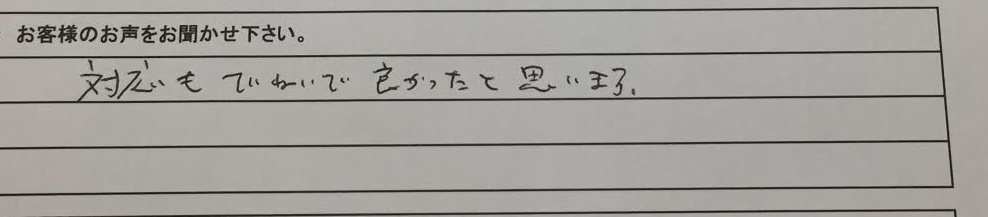 お客様のお声をお聞かせ下さい。
対応も ていねいで 良かったと 思います。